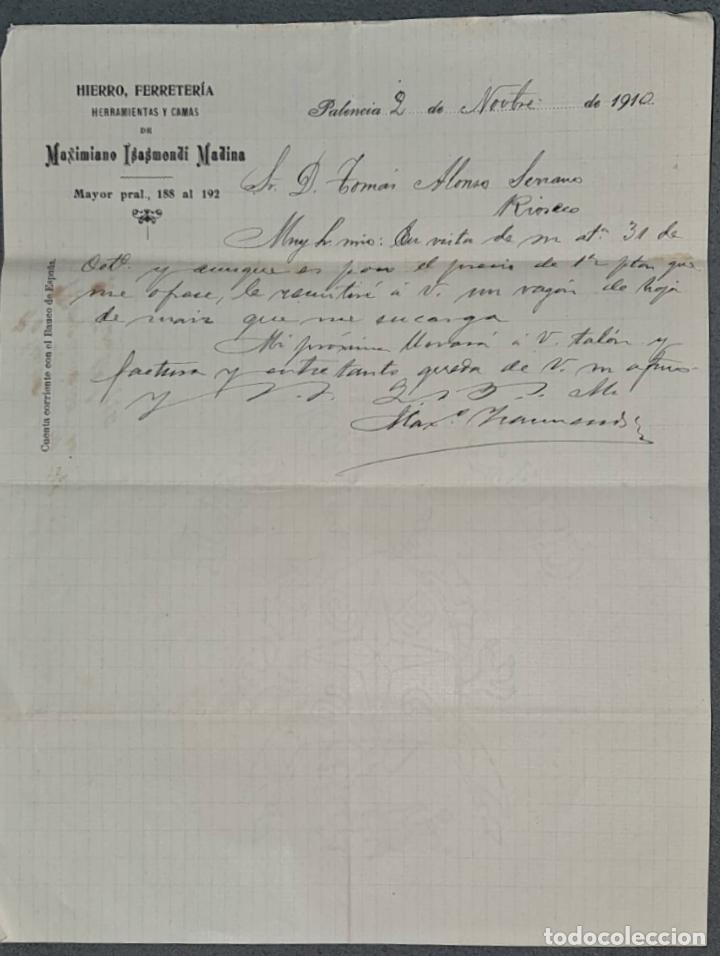 HIERRO, FERRETERÍA
HERRAMIENTAS Y CAMAS
DE
Maximiano Isasmendi Madina
Mayor pral., 188 al 192
Cuenta corriente con el Banco de España.
Palencia 2 de Novbre de 1910.
Sr. D. Tomás Alonso Serrano
Rioseco
Muy Sr. mio: En vista de su atª 31 de
Octe. y aunque es poco el precio de
me ofrece, le remitiré á V. un vagón de hoja
de maiz que me encarga
Mi próxima llevará á V. talón y
factura y entretanto queda de V. m
y s.s. q. s. b. s. m.
Maxº Isasmendi
todocoleccion